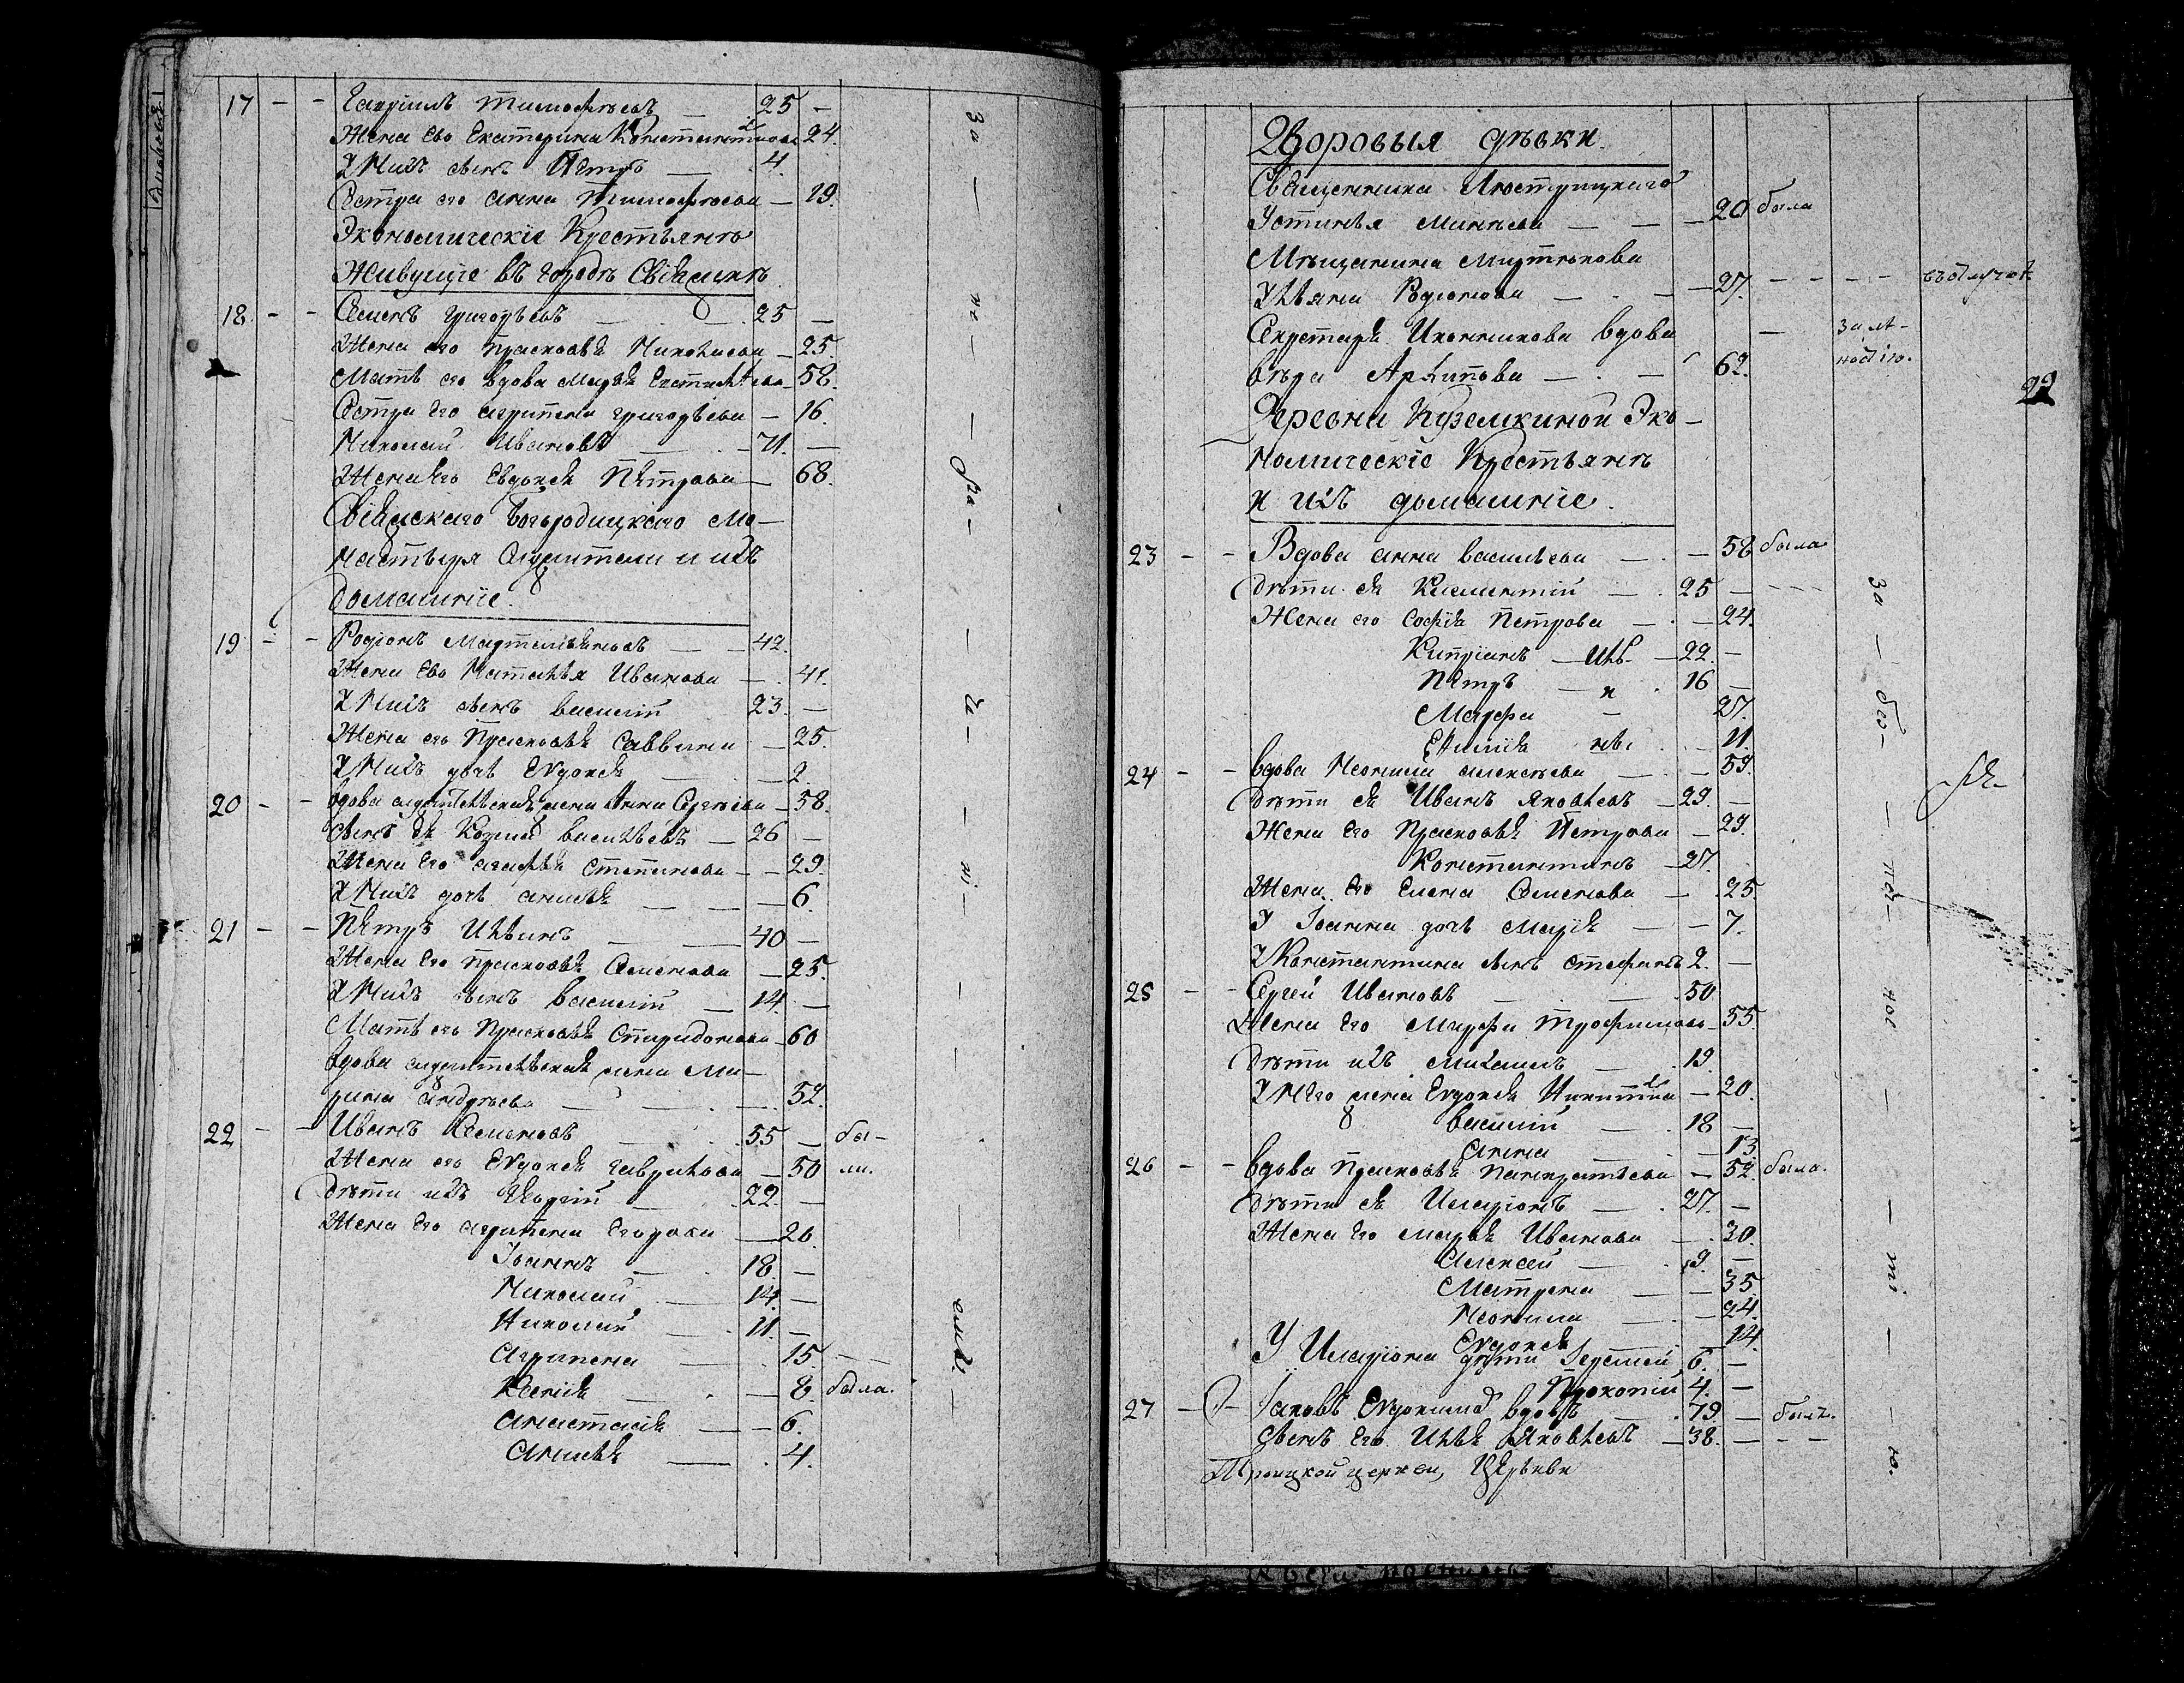 17 - - Гавриилъ Тимофѣевъ 25 -
Жена Ево Екатерина Константинова 24.
У Нихъ сынъ Пётръ 4.
Сестра его Анна Тимофѣева - 19.
Экономическіе Крестьянѣ
Живущіе въ городѣ Свіяжскѣ
18 - - Семенъ Григорьевъ 25 -
Жена его Прасковья Николаева - 25.
Мать его вдова Марья - 58.
Сестра Его Агрипена Григорьева - 16.
Николай Ивановъ - 71. -
Жена Его Евдокея Пётрова - 68.
Свіяжскаго Богородицкаго Мо-
настыря Служители и ихъ
домашніе.
19 - - Родіонъ - 42.
Жена Ево Наталья Иванова - 41.
У Нихъ сынъ Василій 23. -
Жена его Прасковья Саввина - 25.
У Нихъ дочь Евдокея - 2.
20 - - Вдова служительская жена Анна Сергѣева - 58.
Сынъ ея Козма Васильевъ - 26 -
Жена Его Агафья Степанова - 29.
У Нихъ дочь Анисья - 6.
21 - - Пётръ Ильинъ 40 -
Жена Его Прасковья Семенова - 25.
У Нихъ сынъ Василій - 14. -
Мать его Прасковья Спиридонова - 60
Вдова служительская жена Ма-
рина Андрѣева - 52.
22 - - Иванъ Семеновъ 55 - бы-
Жена его Евдокея Гаврилова - 50 ли.
Дѣти ихъ Георгій 22. -
Жена Его Агрипена Егорова - 20.
Іоаннъ - 18. -
Николай - 14. -
Николай - 11. -
Агрипена - 15. -
Ксенія - 8. была.
Анастасія - 6.
Анисья - 4.
за - не - ра - че - ні - емъ
Дворовыя дѣвки.
Священника
Устинья Минѣева - 20 была
Мѣщанина
Ульяна Родіонова - 27.
Секретаря Иконникова вдова - за ст-
Вѣра Архипова - 62. ростію.
22
Деревни Куземкиной Эко-
номическіе Крестьянѣ
и ихъ домашніе.
23 - - Вдова Анна Васильева - 58 была
Дѣти ея Климентій - 25 -
Жена его Софія Петрова - 24.
Кипріанъ - 22. -
Пётръ - 16 -
Марфа - 27.
11.
24 - - Вдова Неонила Алексѣева - 59.
Дѣти ея Иванъ Яковлевъ - 29. -
Жена Его Прасковья Петрова - 29.
Константинъ - 27.
Жена Его Елена Семенова - 25.
У Іоанна дочь Марія - 7.
У Константина сынъ Стефанъ 2. -
25 - - Сергей Ивановъ - 50
Жена Его Марфа Трофимова - 55.
Дѣти ихъ Михаилъ - 19.
У Него жена Евдокея Никитина - 20.
Василій - 18 -
Анна - 13
26 - - Вдова Прасковья Панкратьева - 52. была.
Дѣти ея Иларіонъ - 27. -
Жена Его Марья Иванова - 30.
Алексей - 19. -
Матрена - 35
Неонила - 24.
Евдокея 14
У Иларіона дѣти Герасимъ 6. -
Прокопій 4. -
27 - - Іаковъ Евдокимовъ вдовъ - 79. - былъ.
Сынъ Его Илья Яковлевъ - 38. - - -
Троицкой церкви,